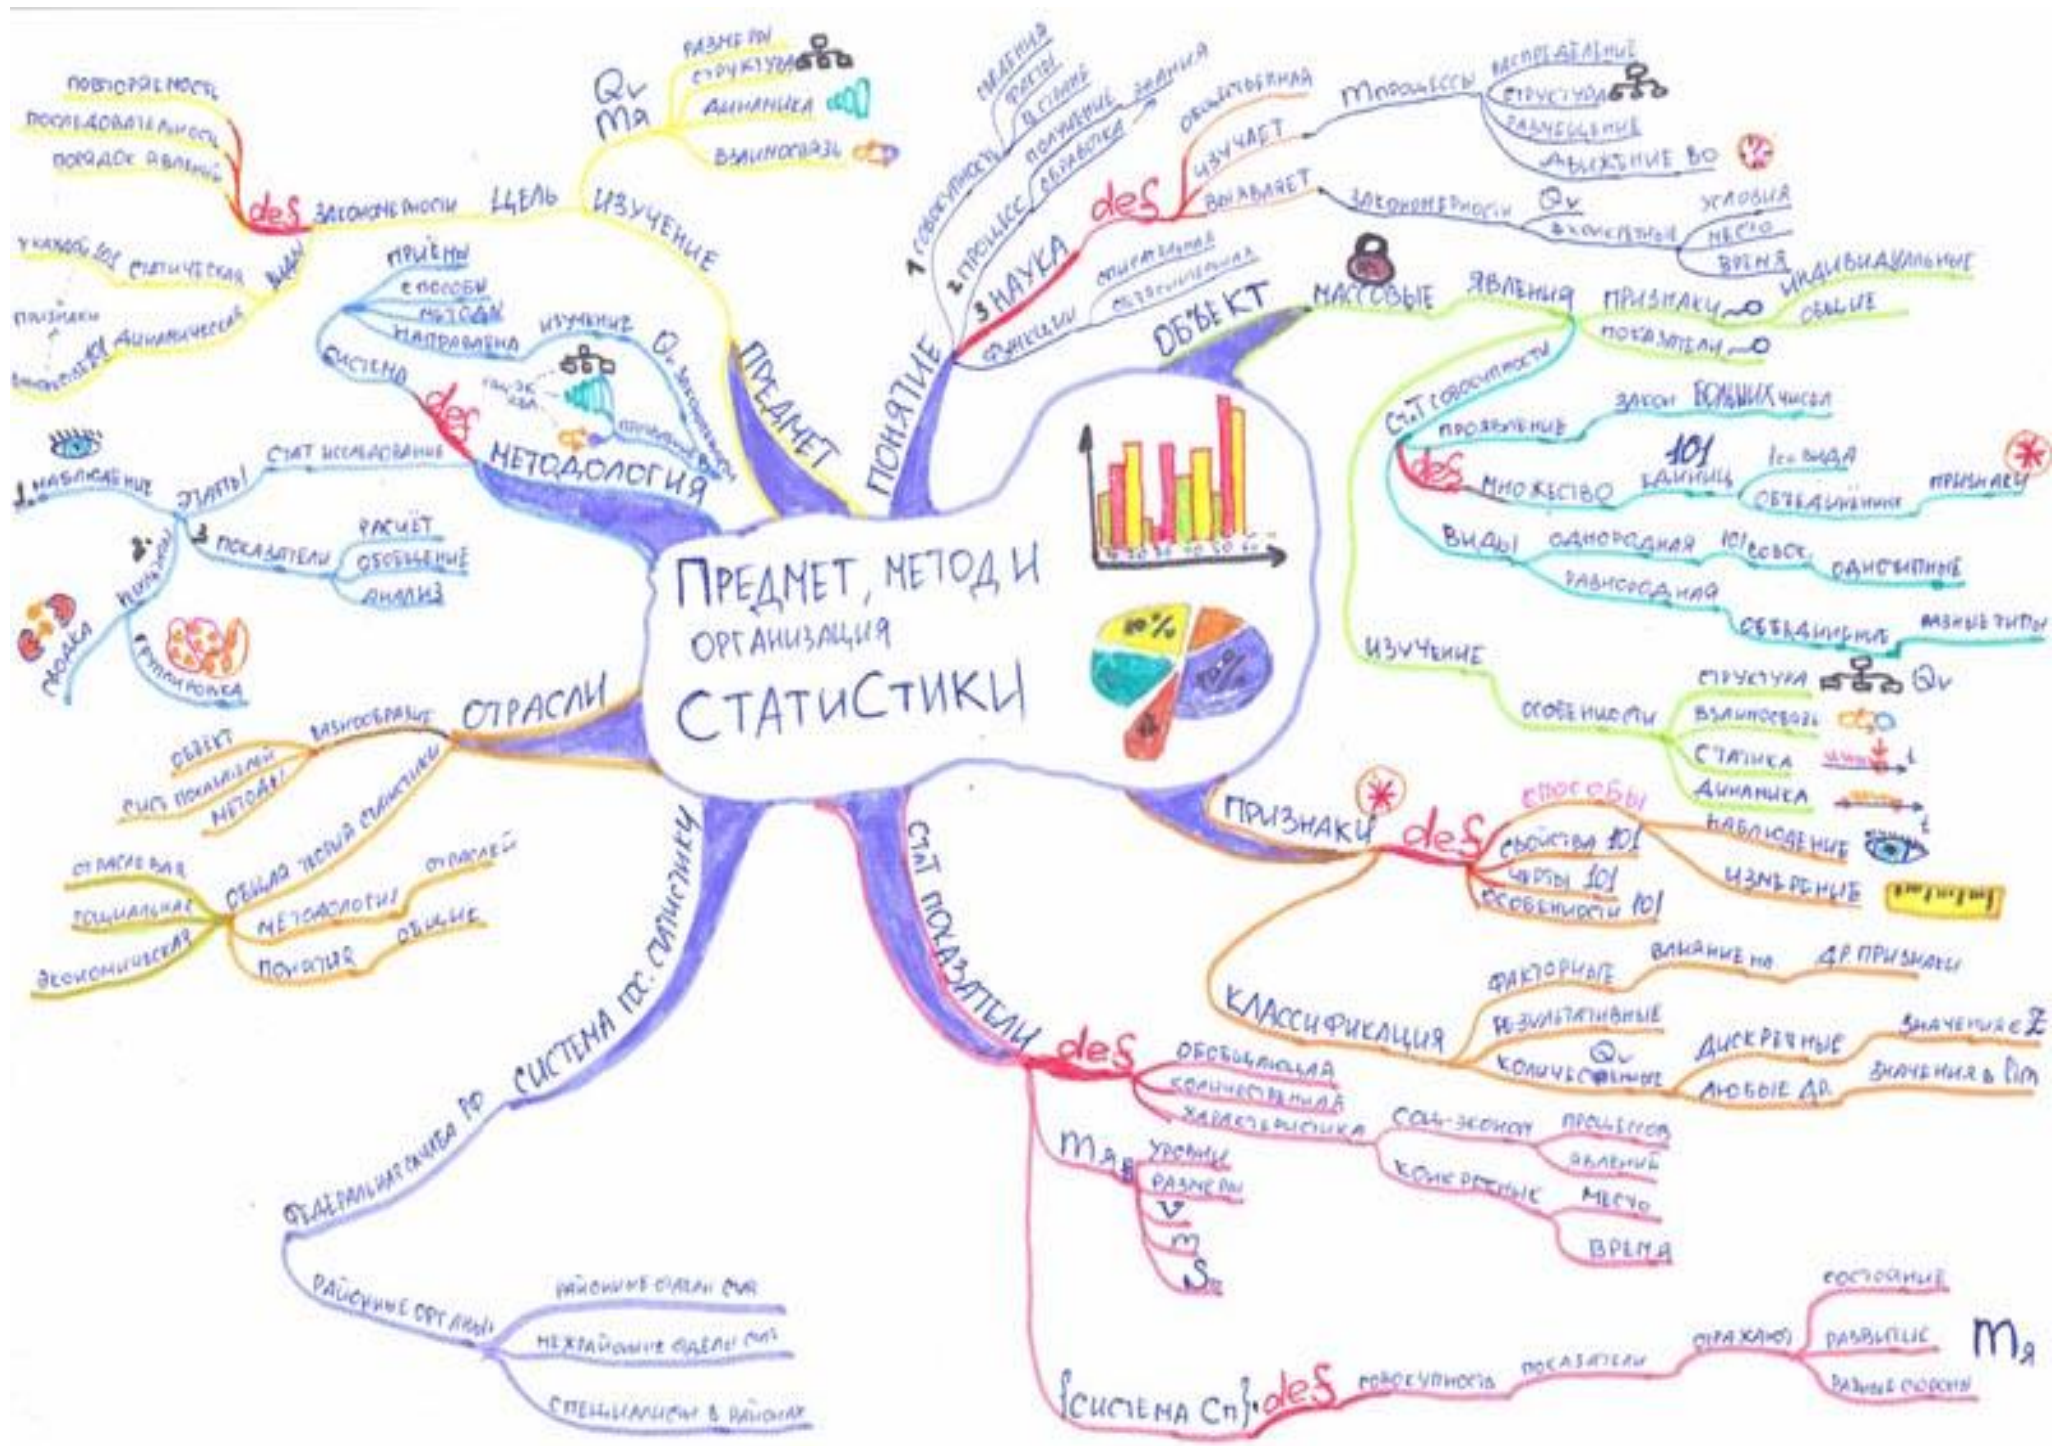 ПРЕДМЕТ, МЕТОД И
ОРГАНИЗАЦИЯ
СТАТИСТИКИ
ПОНЯТИЕ
1 СОВОКУПНОСТЬ
СВЕДЕНИЯ
ФАКТЫ
2 ПРОЦЕСС
ПОЛУЧЕНИЕ
ОБРАБОТКА
ЗНАНИЯ
3 НАУКА
def
ОБЩЕСТВЕННАЯ
ИЗУЧАЕТ
mПРОЦЕССЫ
РАСПРЕДЕЛЕНИЕ
СТРУКТУРА
РАЗМЕЩЕНИЕ
ДВИЖЕНИЕ ВО
ВЫЯВЛЯЕТ
ЗАКОНОМЕРНОСТИ
Qv
В КОНКРЕТНЫЕ
УСЛОВИЯ
МЕСТО
ВРЕМЯ
ФУНКЦИИ
ОПИСАТЕЛЬНАЯ
ОБЪЯСНИТЕЛЬНАЯ
ОБЪЕКТ
МАССОВЫЕ
ЯВЛЕНИЯ
ПРИЗНАКИ
ИНДИВИДУАЛЬНЫЕ
ОБЩИЕ
ПОКАЗАТЕЛИ
СТАТ СОВОКУПНОСТИ
ПРОЯВЛЕНИЕ
ЗАКОН БОЛЬШИХ ЧИСЕЛ
def
МНОЖЕСТВО
101
ЕДИНИЦ
1ГО ВИДА
ОБЪЕДИНЕНИЯ
ПРИЗНАКИ
ВИДЫ
ОДНОРОДНАЯ
101 СОВОК.
ОДНОТИПНЫЕ
РАЗНОРОДНАЯ
ОБЪЕДИНЕНИЕ
РАЗНЫЕ ТИПЫ
ИЗУЧЕНИЕ
ОСОБЕННОСТИ
СТРУКТУРА
Qv
ВЗАИМОСВЯЗЬ
СТАТИКА
t
ДИНАМИКА
t
ПРИЗНАКИ
def
СПОСОБЫ
НАБЛЮДЕНИЕ
ИЗМЕРЕНИЕ
СВОЙСТВА 101
ЧЕРТЫ 101
ОСОБЕННОСТИ 101
КЛАССИФИКАЦИЯ
ФАКТОРНЫЕ
ВЛИЯНИЕ НА
ДР. ПРИЗНАКИ
РЕЗУЛЬТАТИВНЫЕ
Qv
КОЛИЧЕСТВЕННЫЕ
ДИСКРЕТНЫЕ
ЗНАЧЕНИЯ ∈ Z
ЛЮБЫЕ ДР.
ЗНАЧЕНИЯ В lim
СТАТ ПОКАЗАТЕЛИ
def
ОБОБЩАЮЩАЯ
КОЛИЧЕСТВЕННАЯ
ХАРАКТЕРИСТИКА
СОЦ-ЭКОНОМ
ПРОЦЕССОВ
ЯВЛЕНИЙ
КОНКРЕТНЫХ
МЕСТО
ВРЕМЯ
mЯ
УРОВНИ
РАЗМЕРЫ
V
m
S
{СИСТЕМА СП}
def
СОВОКУПНОСТЬ
ПОКАЗАТЕЛИ
ОТРАЖАЮТ
СОСТОЯНИЕ
РАЗВИТИЕ
РАЗНЫЕ СТОРОНЫ
mЯ
СИСТЕМА ГОС. СТАТИСТИКИ
ФЕДЕРАЛЬНАЯ СЛУЖБА РФ
РАЙОННЫЕ ОРГАНЫ
РАЙОННЫЕ ОТДЕЛЫ
МЕЖРАЙОННЫЕ ОТДЕЛЫ
СПЕЦИАЛИСТЫ В РАЙОНАХ
ОТРАСЛИ
РАЗНООБРАЗИЕ
ОБЪЕКТ
СИСТ ПОКАЗАТЕЛЕЙ
МЕТОДЫ
ОБЩАЯ ТЕОРИЯ СТАТИСТИКИ
ОТРАСЛЕВАЯ
СОЦИАЛЬНАЯ
ЭКОНОМИЧЕСКАЯ
МЕТОДОЛОГИЯ
ОТРАСЛЕЙ
ПОНЯТИЯ
ОБЩИЕ
МЕТОДОЛОГИЯ
def
СИСТЕМА
ПРИЁМЫ
СПОСОБЫ
МЕТОДЫ
НАПРАВЛЕНА
ИЗУЧЕНИЕ
Qv ЗАКОНОМЕРНОСТИ
СТАТ ИССЛЕДОВАНИЕ
ЭТАПЫ
1. НАБЛЮДЕНИЕ
2.
СВОДКА
ГРУППИРОВКА
3
ПОКАЗАТЕЛИ
РАСЧЁТ
ОБОБЩЕНИЕ
АНАЛИЗ
ПРЕДМЕТ
ИЗУЧЕНИЕ
Qv
mЯ
РАЗМЕРЫ
СТРУКТУРА
ДИНАМИКА
ВЗАИМОСВЯЗЬ
ЦЕЛЬ
ЗАКОНОМЕРНОСТИ
def
ПОВТОРЯЕМОСТЬ
ПОСЛЕДОВАТЕЛЬНОСТЬ
ПОРЯДОК ЯВЛЕНИЙ
ВИДЫ
СТАТИЧЕСКАЯ
У КАЖДОЙ 101
ПРИЗНАКИ
ДИНАМИЧЕСКАЯ